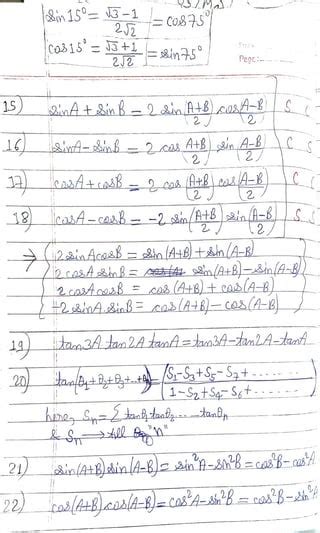 sin15° = √3-1/2√2 = cos75°
cos15° = √3+1/2√2 = sin75°
Page:
15) sinA + sinB = 2 sin(A+B/2) cos(A-B/2) S C
16) sinA - sinB = 2 cos(A+B/2) sin(A-B/2) C S
17) cosA + cosB = 2 cos(A+B/2) cos(A-B/2) C C
18) cosA - cosB = -2 sin(A+B/2) sin(A-B/2) S S
→ 2 sinA cosB = sin(A+B) + sin(A-B)
2 cosA sinB = sin(A+B) - sin(A-B)
2 cosA cosB = cos(A+B) + cos(A-B)
-2 sinA sinB = cos(A+B) - cos(A-B)
19) tan3A tan2A tanA = tan3A - tan2A - tanA
20) tan(θ₁+θ₂+θ₃+...+θₙ) = (S₁-S₃+S₅-S₇+....... / 1-S₂+S₄-S₆+.......)
here, Sₙ = Σ tanθ₁ tanθ₂ ..... tanθₙ
& Sₙ → till "n"
21) sin(A+B) sin(A-B) = sin²A - sin²B = cos²B - cos²A
22) cos(A+B) cos(A-B) = cos²A - sin²B = cos²B - sin²A